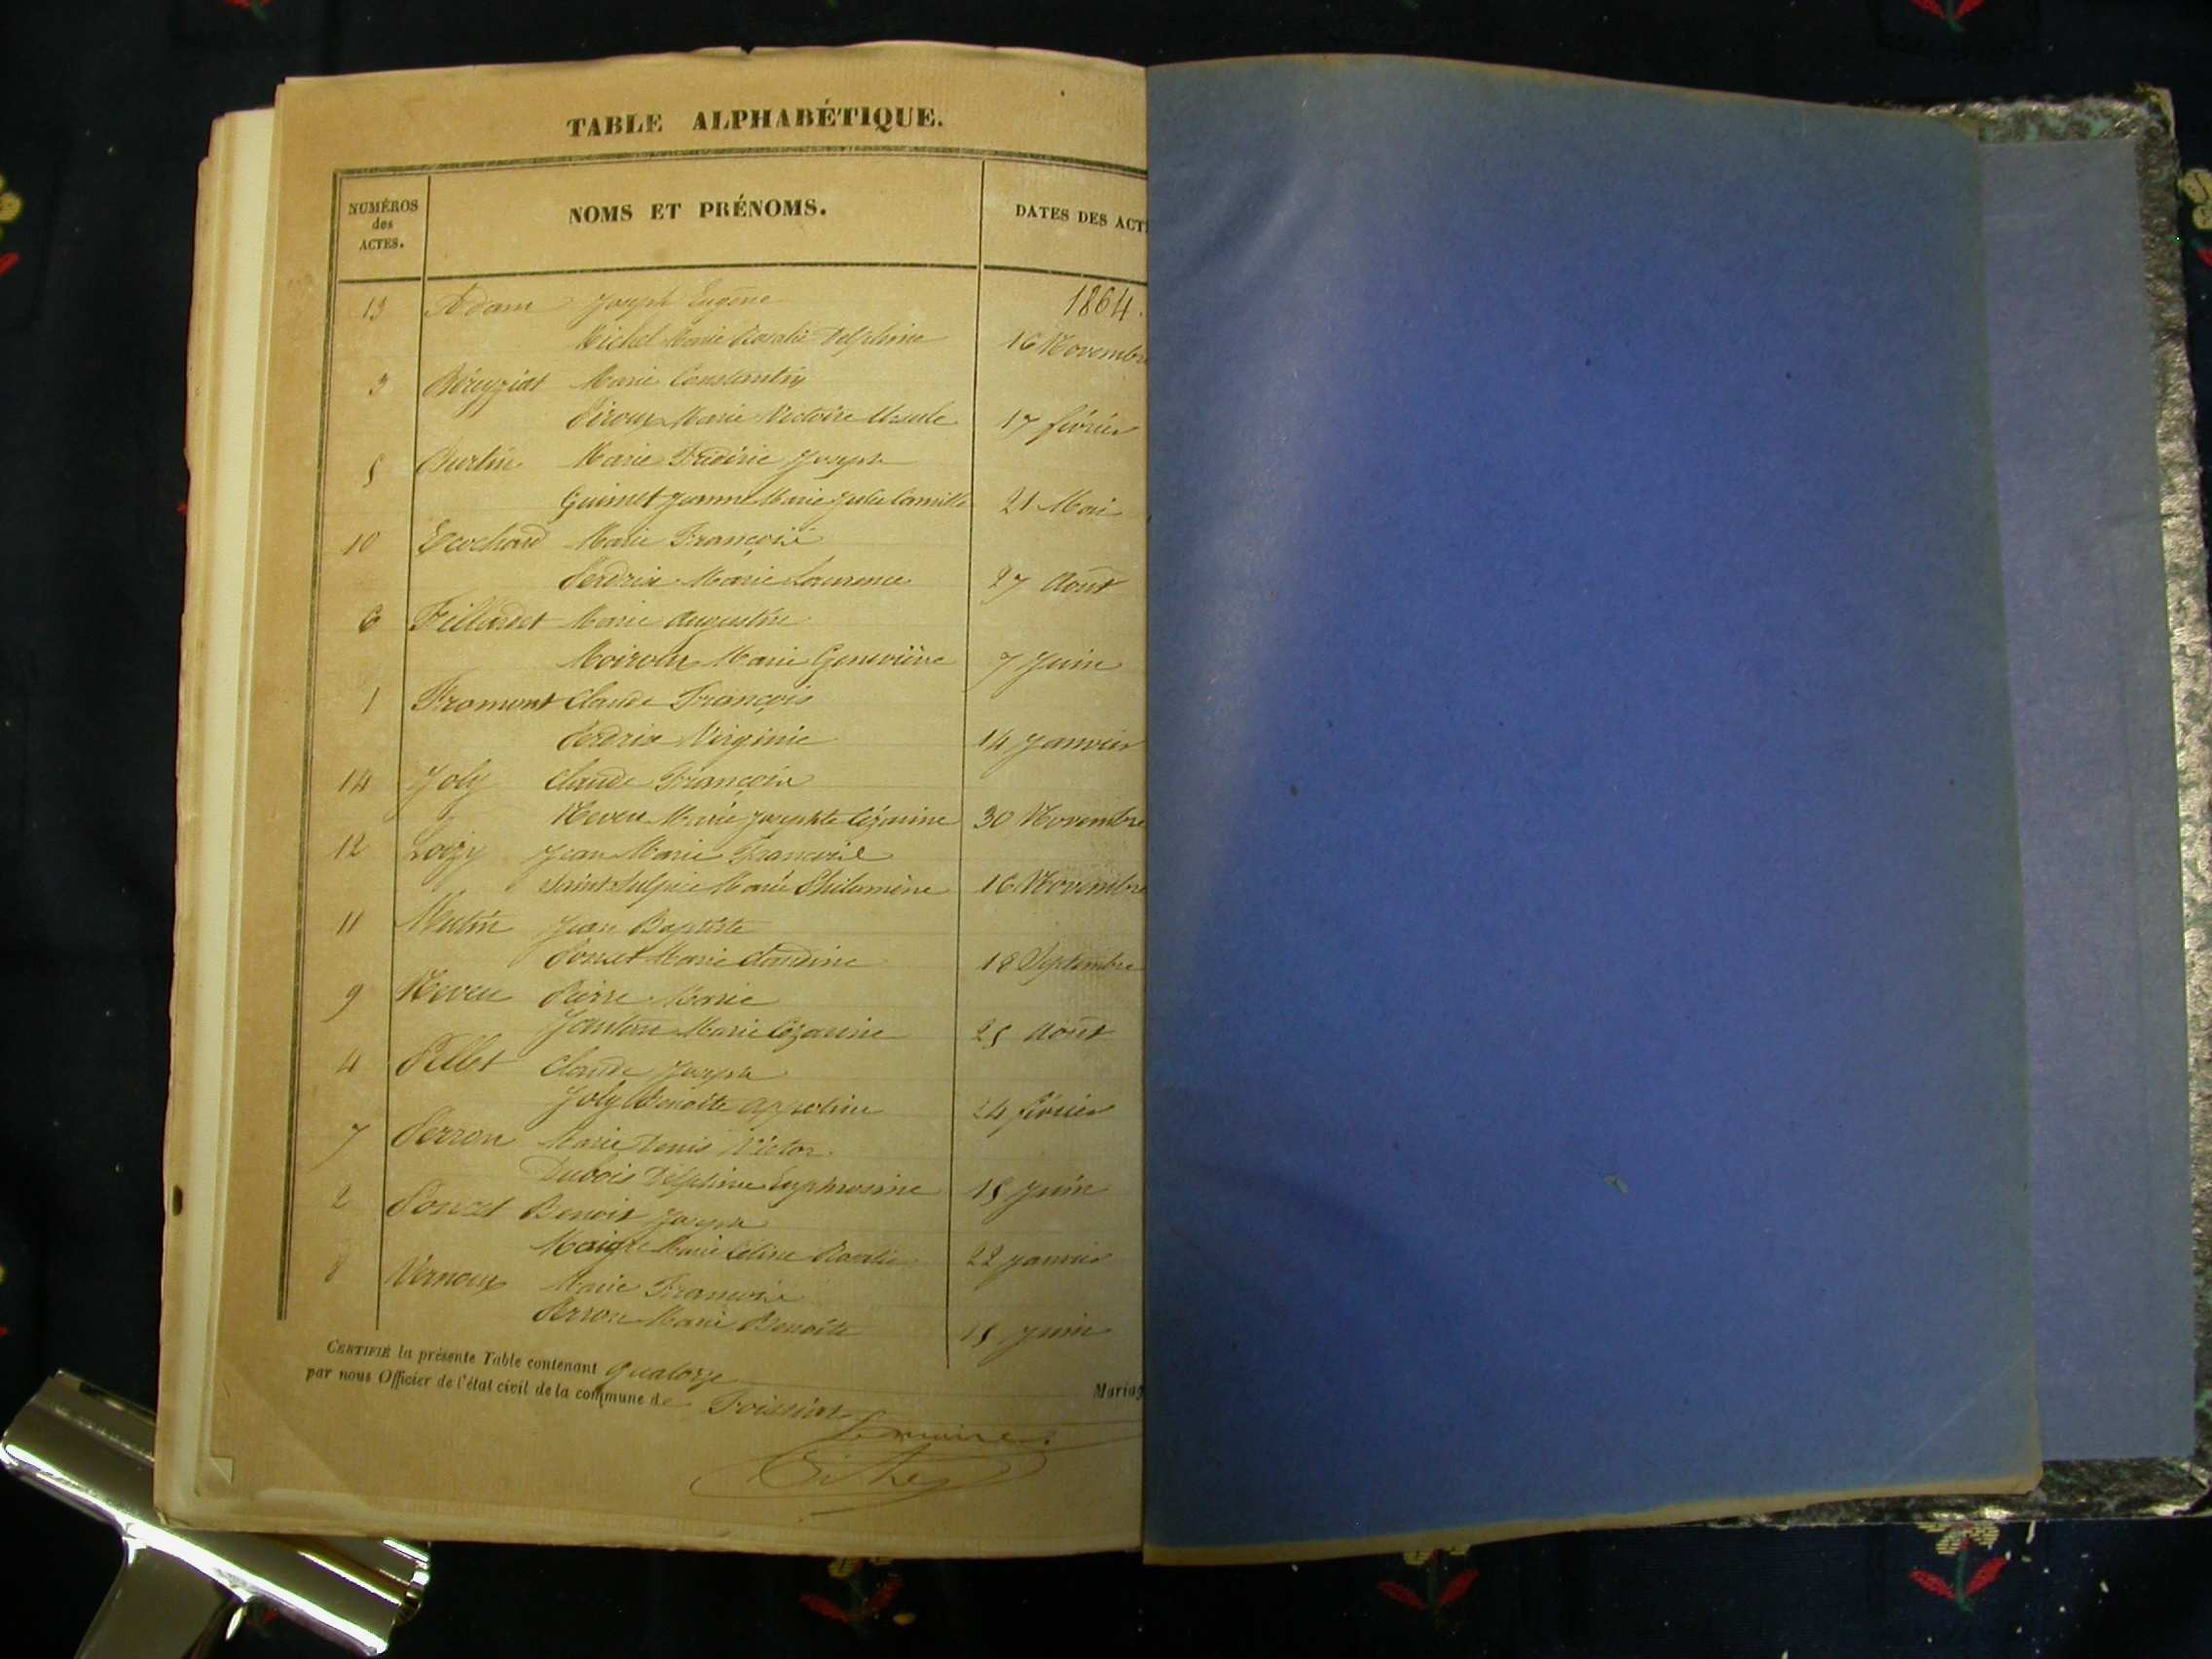 TABLE ALPHABÉTIQUE.
NUMÉROS des ACTES.
NOMS ET PRÉNOMS.
DATES DES ACT
1864.
13 Adam Joseph Eugène
Michel Marie Rosalie Delphine 16 Novembre
3 Béreyziat Marie Constantin
Piroux Marie Victoire Ursule 17 février
5 Burtin Marie Frédéric Joseph
Guimet Jeanne Marie Julie Camille 21 Mai
10 Ecochard Marie François
Perdrix Marie Laurence 27 Août
6 Fillardet Marie Augustin
Moiroux Marie Geneviève 7 Juin
1 Fromont Claude François
Perdrix Virginie 14 Janvier
14 Joly Claude François
Neveu Marie Josephte Cézarine 30 Novembre
12 Loizy Jean Marie François
Saint Sulpice Marie Philomène 16 Novembre
11 Mutin Jean Baptiste
Poncet Marie Claudine 18 Septembre
9 Neveu Pierre Marie
Jantan Marie Cézarine 25 Août
4 Pillet Claude Joseph
Joly Benoîte Appoline 24 février
7 Perron Marie Denis Victor
Dubois Delphine Euphrosine 15 Juin
2 Poncet Benoit Joseph
Maigre Marie Céline Rosalie 22 Janvier
8 Vernoux Marie François
Perron Marie Benoîte 15 Juin
CERTIFIÉ la présente Table contenant quatorze Mariag
par nous Officier de l'état civil de la commune de Foissiat
Le maire